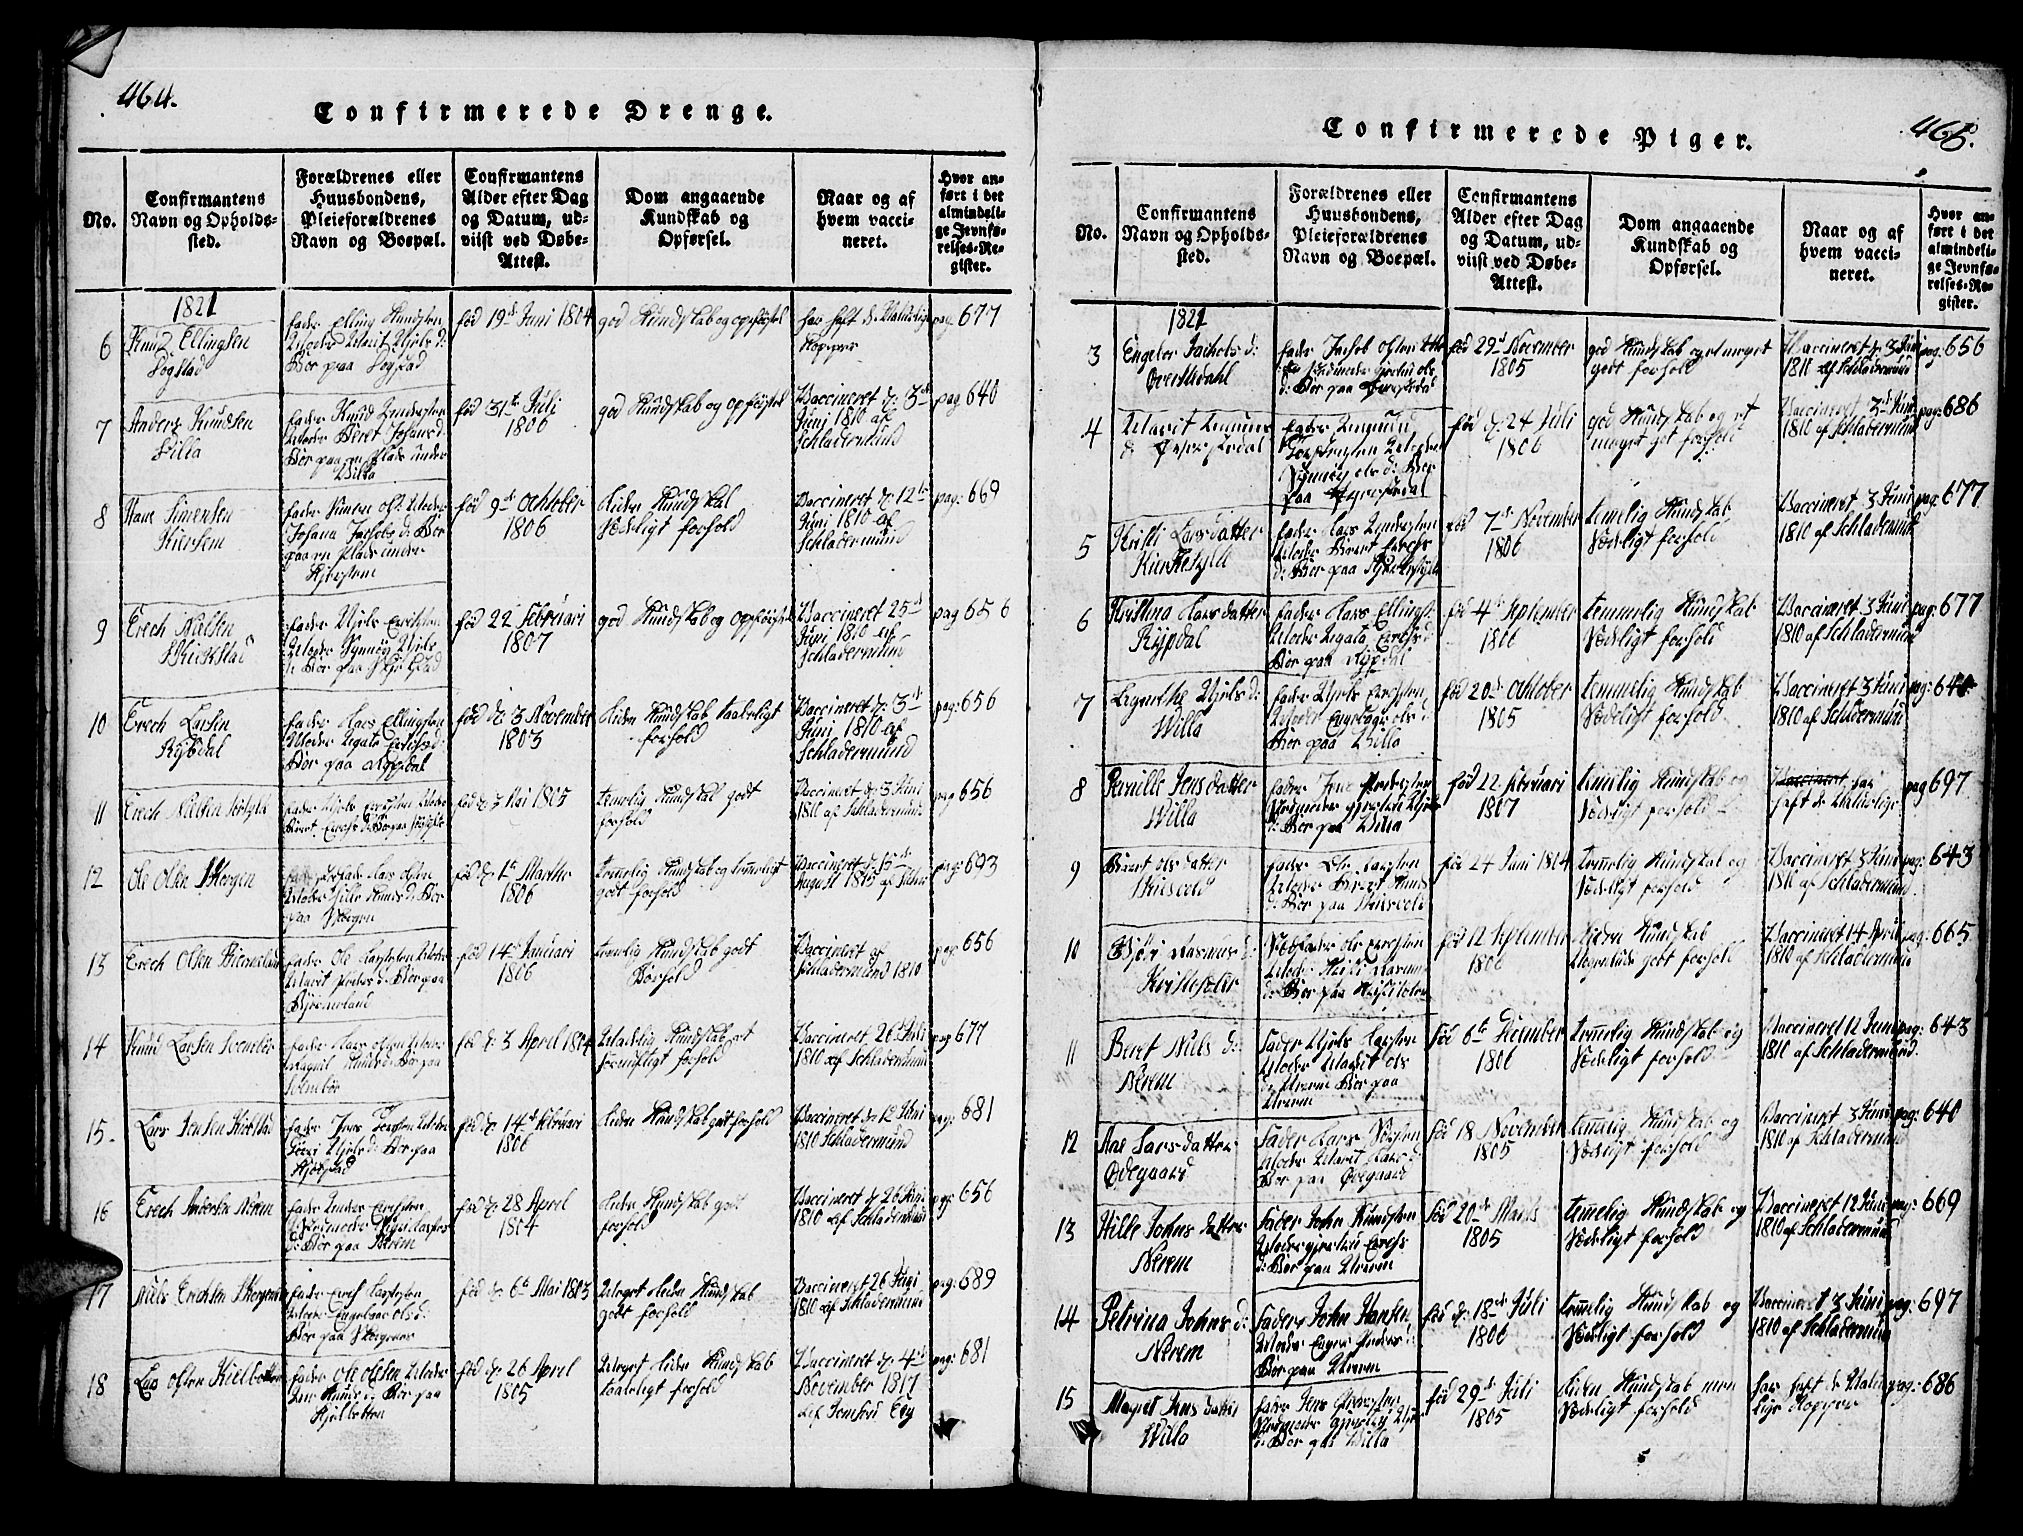 464.
Confirmerede Drenge.
No.
Confirmantens
Navn og Opholds-
sted.
Forældrenes eller
Huusbondens,
Pleieforældrenes
Navn og Boepæl.
Confirmantens
Alder efter Dag
og Datum, ud-
viist ved Døbe-
Attest.
Dom angaaende
Kundskab og
Opførsel.
Naar og af
hvem vacci-
neret.
Hvor an-
ført i det
almindeli-
ge Jevnfø-
relses-Re-
gister.
1821
6
Knud Ellingsen
Sogstad
fader Elling Knudsen
Moder Marit Niels d:
Boer paa Sogstad
fød 19de Juni 1804
god Kundskab og opførsel
har haft de Naturlige
Kopper
pag 677
7
Anders Knudsen
Villa
fader Knud Andersen
Moder Beret Johans d:
Boer paa en Plads under
Villa
fød 31te Juli
1806
god Kundskab og opførsel
Vaccineret d: 3de
Juni 1810 af
Schladermund
pag 640
8
Hans Simensen
fader Simen
Johana Jacobs d: Boer
paa en Plads under
fød 9de October
1806
liden Kundskab
Sædeligt forhold
Vaccineret d: 12te
Juni 1810 af
Schladermund
pag: 669
9
Erech Nielsen
fader Niels Erechsen
Moder Synnøv Niels
d: Boer paa
fød 22 februari
1807
god Kundskab og opførsel
Vaccineret 25de
Juni 1810 af
Schladermund
pag 656
10
Erech Larsen
Rypdal
fader Lars Ellingsen
Moder Agata Erechs d:
Boer paa Rypdal
fød d: 3 November
1803
liden Kundskab taaleligt
forhold
Vaccineret d: 3de
Juni 1810 af
Schladermund
pag: 656
11
Erech Nielsen
fader Niels Erechsen Moder
Beret Erechs d: Boer paa
fød d: 3 Mai 1805
temelig Kundskab godt
forhold
Vaccineret d: 3 Juni
1810 af Schladermund
pag 656
12
Ole Olsen Skorgen
Boer
paa Skorgen
fød d: 1te Martii
1806
temelig Kundskab og temmeligt
godt forhold
Vaccineret d:
August 1815 af
pag: 693
13
Erech Olsen Biørneland
fader Ole Larssen Moder
Marit Peders d: Boer paa
Biørneland
fød 14de Januari
1806
temelig Kundskab godt
forhold
Vaccineret af
Schladermund 1810
pag: 656
14
Knud Larsen
fader Lars Olsen Moder
Knuds d: Boer paa
fød d: 3 April 1804
Maadelig Kundskab et
fornuftigt forhold
Vaccineret 26 Juli
1810 af Schladermund
pag 677
15.
Lars Jensen Kielstad
fader Jens
Niels d: Boer paa
fød d: 14de februari
1806
liden Kundskab godt forhold
Vaccineret d: 12 Juni
1810 Schladermund
pag: 681
16
Erech Andersen Nerem
fader Anders Erechsen
d: Boer paa Nerem
fød d: 28 April
1804
liden Kundskab godt
forhold
Vaccineret d: 26 Juni
1810 af Schladermund
pag: 656
17
Niels Erechsen
fader Erech Larssen
Moder Engebor Ols d:
Boer paa
fød d: 6te Mai 1803
Meget liden Kundskab
godt forhold
Vaccineret 26 Juni
1810 af Schladermund
pag: 689
18
Lars Olsen Kielbotten
fader Ole Olsen Moder
Knuds d: Boer paa
Kielbotten
fød d: 26 April
1805
Meget liden Kundskab
taaleligt forhold
Vaccineret d: 4de
November 1817
af Jomfru
pag: 681
465.
Confirmerede Piger.
No.
Confirmantens
Navn og Opholds-
sted.
Forældrenes eller
Huusbondens,
Pleieforældrenes
Navn og Boepæl.
Confirmantens
Alder efter Dag
og Datum, ud-
viist ved Døbe-
Attest.
Dom angaaende
Kundskab og
Opførsel.
Naar og af
hvem vacci-
neret.
Hvor an-
ført i det
almindeli-
ge Jevnfø-
relses-Re-
gister.
1821
3
Engebor Jachobs d:
fader Jachob Olsen
d: Boer paa
fød 29de November
1805
god Kundskab og et meget
godt forhold
Vaccineret d: 3 Juni
1810 af Schladermund
pag: 656
4
Marit Amunds
d
fader Amund
Moder
Synnøv Ols d: Boer
paa
fød d: 24 Juli
1806
god Kundskab og et
meget got forhold
Vaccineret 3de Juni
1810 af Schladermund
pag: 686
5
Kristi Larsdatter
fader Lars Andersen
Moder Beret Erechs
d: Boer paa
fød 7de November
1806
temelig Kundskab
Sædeligt forhold
Vaccineret 3 Juni
1810 af Schladermund
pag: 677
6
Kristina Larsdatter
Rypdal
fader Lars Ellings:
Moder Agata Erechs d
Boer paa Rypdal
fød 4de September
1806
temmelig Kundskab
Sædeligt forhold
Vaccineret 3 Juni
1810 af Schladermund
pag: 677
7
Niels d:
Willa
fader Niels Erechsen
Moder Ols d
Boer paa Villa
fød 20de October
1805
temmelig Kundskab
Sædeligt forhold
Vaccineret 3 Juni
1810 af Schladermund
pag: 640
8
Pernille Jens datter
Willa
fader Jens Andersen
Niels
d: Boer paa Villa
fød 22 februari
1807
temelig Kundskab og
Sædeligt forhold
Vaccineret har
haft de Naturlige
pag 697
9
Beret Olsdatter
fader Ole Larssen
Moder Beret Knuds
d: Boer paa
fød 24 Juni 1804
temelig Kundskab og
Sædeligt forhold
Vaccineret 3 Juni
1810 af Schladermund
pag: 643
10
Rasmus d:
Ole Erechsen
Moder Rasmus
d: Boer paa
fød 12 September
1806
liden Kundskab
godt forhold
Vaccineret 14 April
1810 af Schladermund
pag: 665
11
Beret Niels d:
Nerem
Fader Niels Larssen
Moder Marit Ols
d: Boer paa
Nerem
fød 6te December
1806
temelig Kundskab og
Sædeligt forhold
Vaccineret 12 Juni
1810 af Schladermund
pag: 643
12
Larsdatter
Ødegaard
Fader Lars
Moder Marit Lars d:
Boer paa Ødegaard
fød 18 November
1805
temelig Kundskab og
Sædeligt forhold
Vaccineret 3 Juni
1810 af Schladermund
pag: 640
13
Hille Johns datter
Nerem
Fader John Knudsen
Erechs
d: Boer paa Nerem
fød 20de Marts
1805
temelig Kundskab og
Sædeligt forhold
Vaccineret 12 Juni
1810 af Schladermund
pag: 669
14
Petrina Johns d:
Nerem
Fader John Hansen
Moder Peders d:
Boer paa Nerem
fød d: 18de Juli
1806
temelig Kundskab og
Sædeligt forhold
Vaccineret 3 Juni
1810 af Schladermund
pag: 697
15
Jens datter
Willa
fader Jens
Niels
d: Boer paa Villa
fød 29de Juli
1805
liden Kundskab men
Sædeligt forhold
har haft de Natur-
lige Kopper
pag: 686